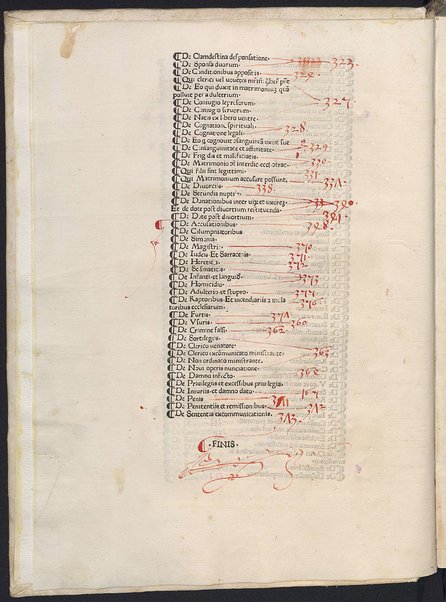 ¶De Clamdestina desponsatione· 323
¶De Sponsa duorum·
¶De Conditionibus appositis· 324
¶Qui clerici vel voventes
¶De Eo qui duxit in matrimonium quā
polluit per adulterium·
¶De Coniugio leprosorum· 327
¶De Coniugio servorum·
¶De Natis ex libero ventre·
¶De Cognation, spirituali· 328
¶De Cognitione legali·
¶De Eo q cognovit ɔsanguineā uxoris sue
¶De Consanguinitate et affinitate· 329
¶De Frigidis et maleficiatis·
¶De Matrimonio ɔt interdic eccl ɔtrac· 330
Qui Filii sint legittimi· 331
¶Qui Matrimonium accusare possunt· 331
¶De Divorciis· 338
¶De Secundis nuptiis·
¶De Donationibus inter virū et uxorē 340
Et de dote post divortium restituenda·
¶De Dote post divortium· 341
¶De Accusationibus· 348
¶De Calumpniatoribus
¶De Simonia·
¶De Magistris· 370
¶De Iudeis Et Sarracenis· 371
¶De Hereticis· 372
¶De Scismaticis·
¶De Infantibus et languidis· 373
¶De Homicidio·
¶De Adulteriis et stupro· 374
¶De Raptoribus· Et incendiariis a viola
toribus ecclesiarum· 376
¶De Furtis·
¶De Vsuris· 360
¶De Crimine falsi· 362
¶De Sortilegiis·
¶De Clerico venatore·
¶De Clerico excōmunicato ministrante· 363
¶De Non ordinato ministrante·
¶De Novi operis nunciatione·
¶De Damno infecto· 364
¶De Privilegiis et excessibus privilegiis·
¶De Iniuriis et damno dato·
¶De Penis 311
¶De Penitentiis et remissionibus· 312
¶De Sententia excommunicationis· 313
¶·FINIS·